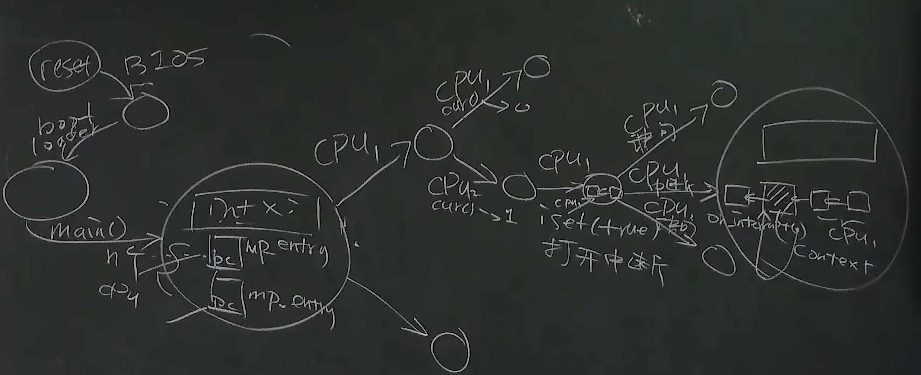 reset
BIOS
boot
loader
main()
int x;
pc mp_entry
pc mp_entry
n
cpu
CPU1
CPU1
curr → 0
CPU2
curr → 1
CPU1
iset(true)
打开中断
CPU1
CPU1
CPU1
on_interrupt()
CPU1
context